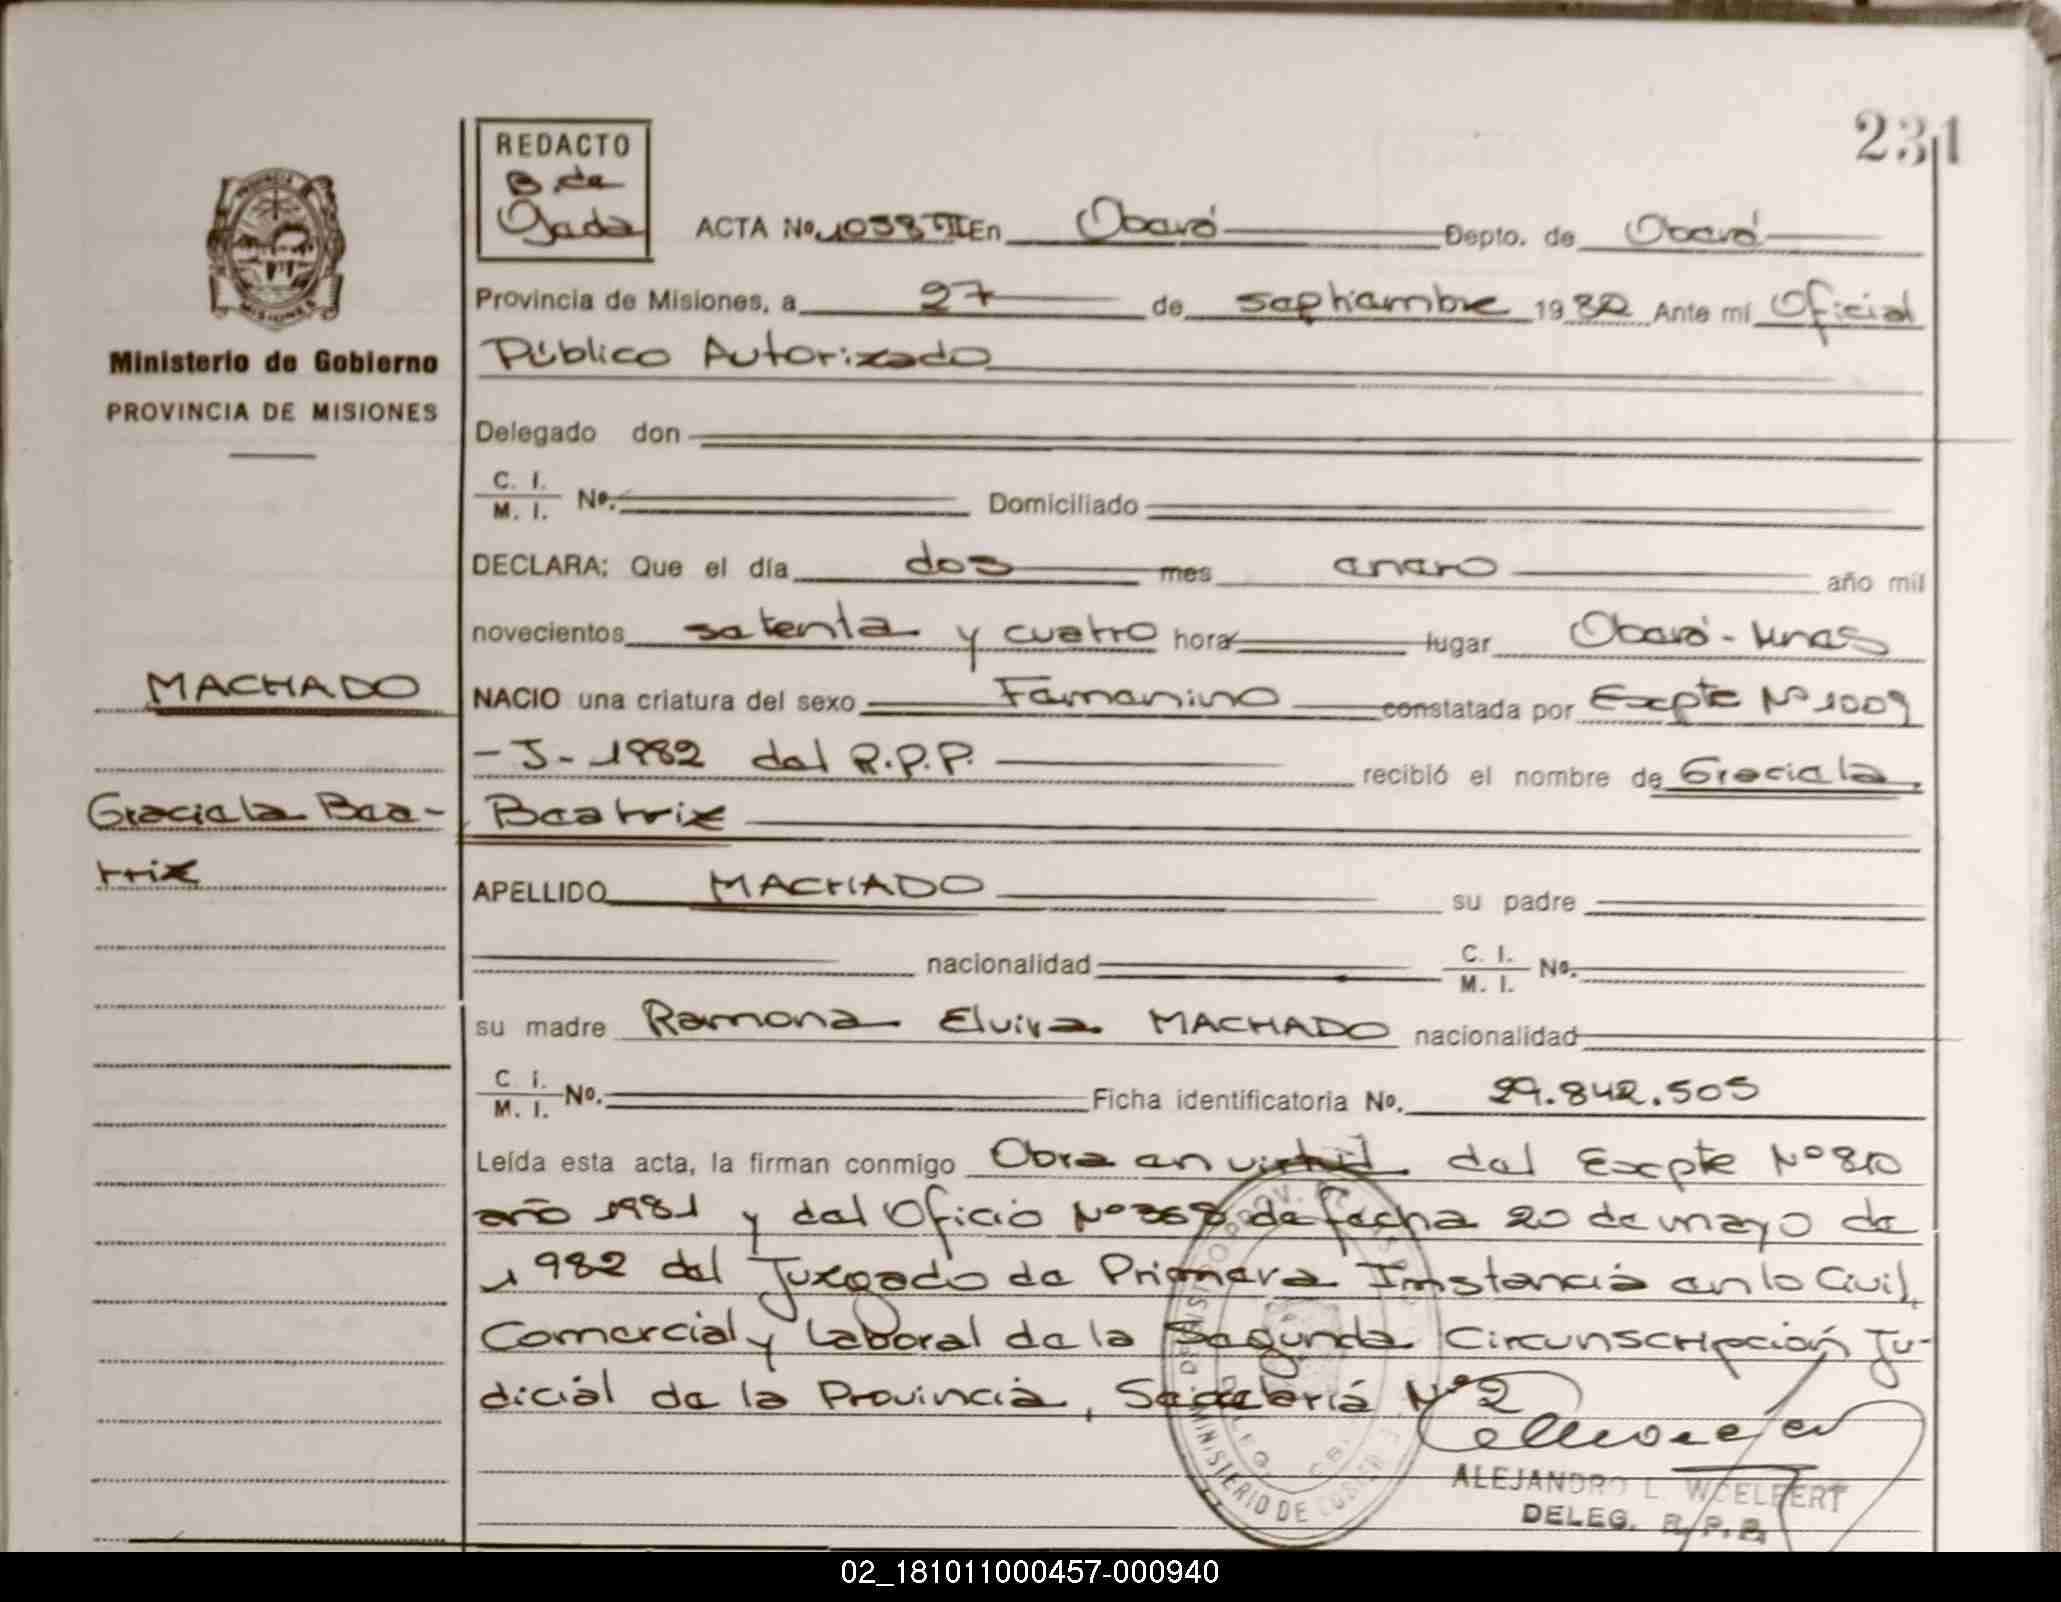 231
REDACTO
B. de
Ojeda
ACTA No. 1038 TIII En Oberá Depto. de Oberá
Provincia de Misiones, a 27 de septiembre 1982 Ante mí Oficial
Público Autorizado
Ministerio de Gobierno
PROVINCIA DE MISIONES
Delegado don
C. I.
M. I. No. Domiciliado
DECLARA: Que el día dos mes enero año mil
novecientos setenta y cuatro hora lugar Oberá - Mnes
MACHADO
NACIO una criatura del sexo Femenino constatada por Expte Nº 1009
- J - 1982 del R.P.P. recibió el nombre de Graciela
Graciela Bea-
trix
Beatrix
APELLIDO MACHADO su padre
nacionalidad C. I.
M. I. No.
su madre Ramona Elvira MACHADO nacionalidad
C. I.
M. I. No. Ficha identificatoria No. 29.842.505
Leída esta acta, la firman conmigo Obra en virtud del Expte Nº 810
año 1981 y del Oficio Nº 368 de fecha 20 de mayo de
1982 del Juzgado de Primera Imstancia en lo Civil,
Comercial y Laboral de la Segunda Circunscripción Ju-
dicial de la Provincia, Secretaría Nº 2
ALEJANDRO L. WOELFERT
DELEG. R.P.P.
MINISTERIO DE
02_181011000457-000940